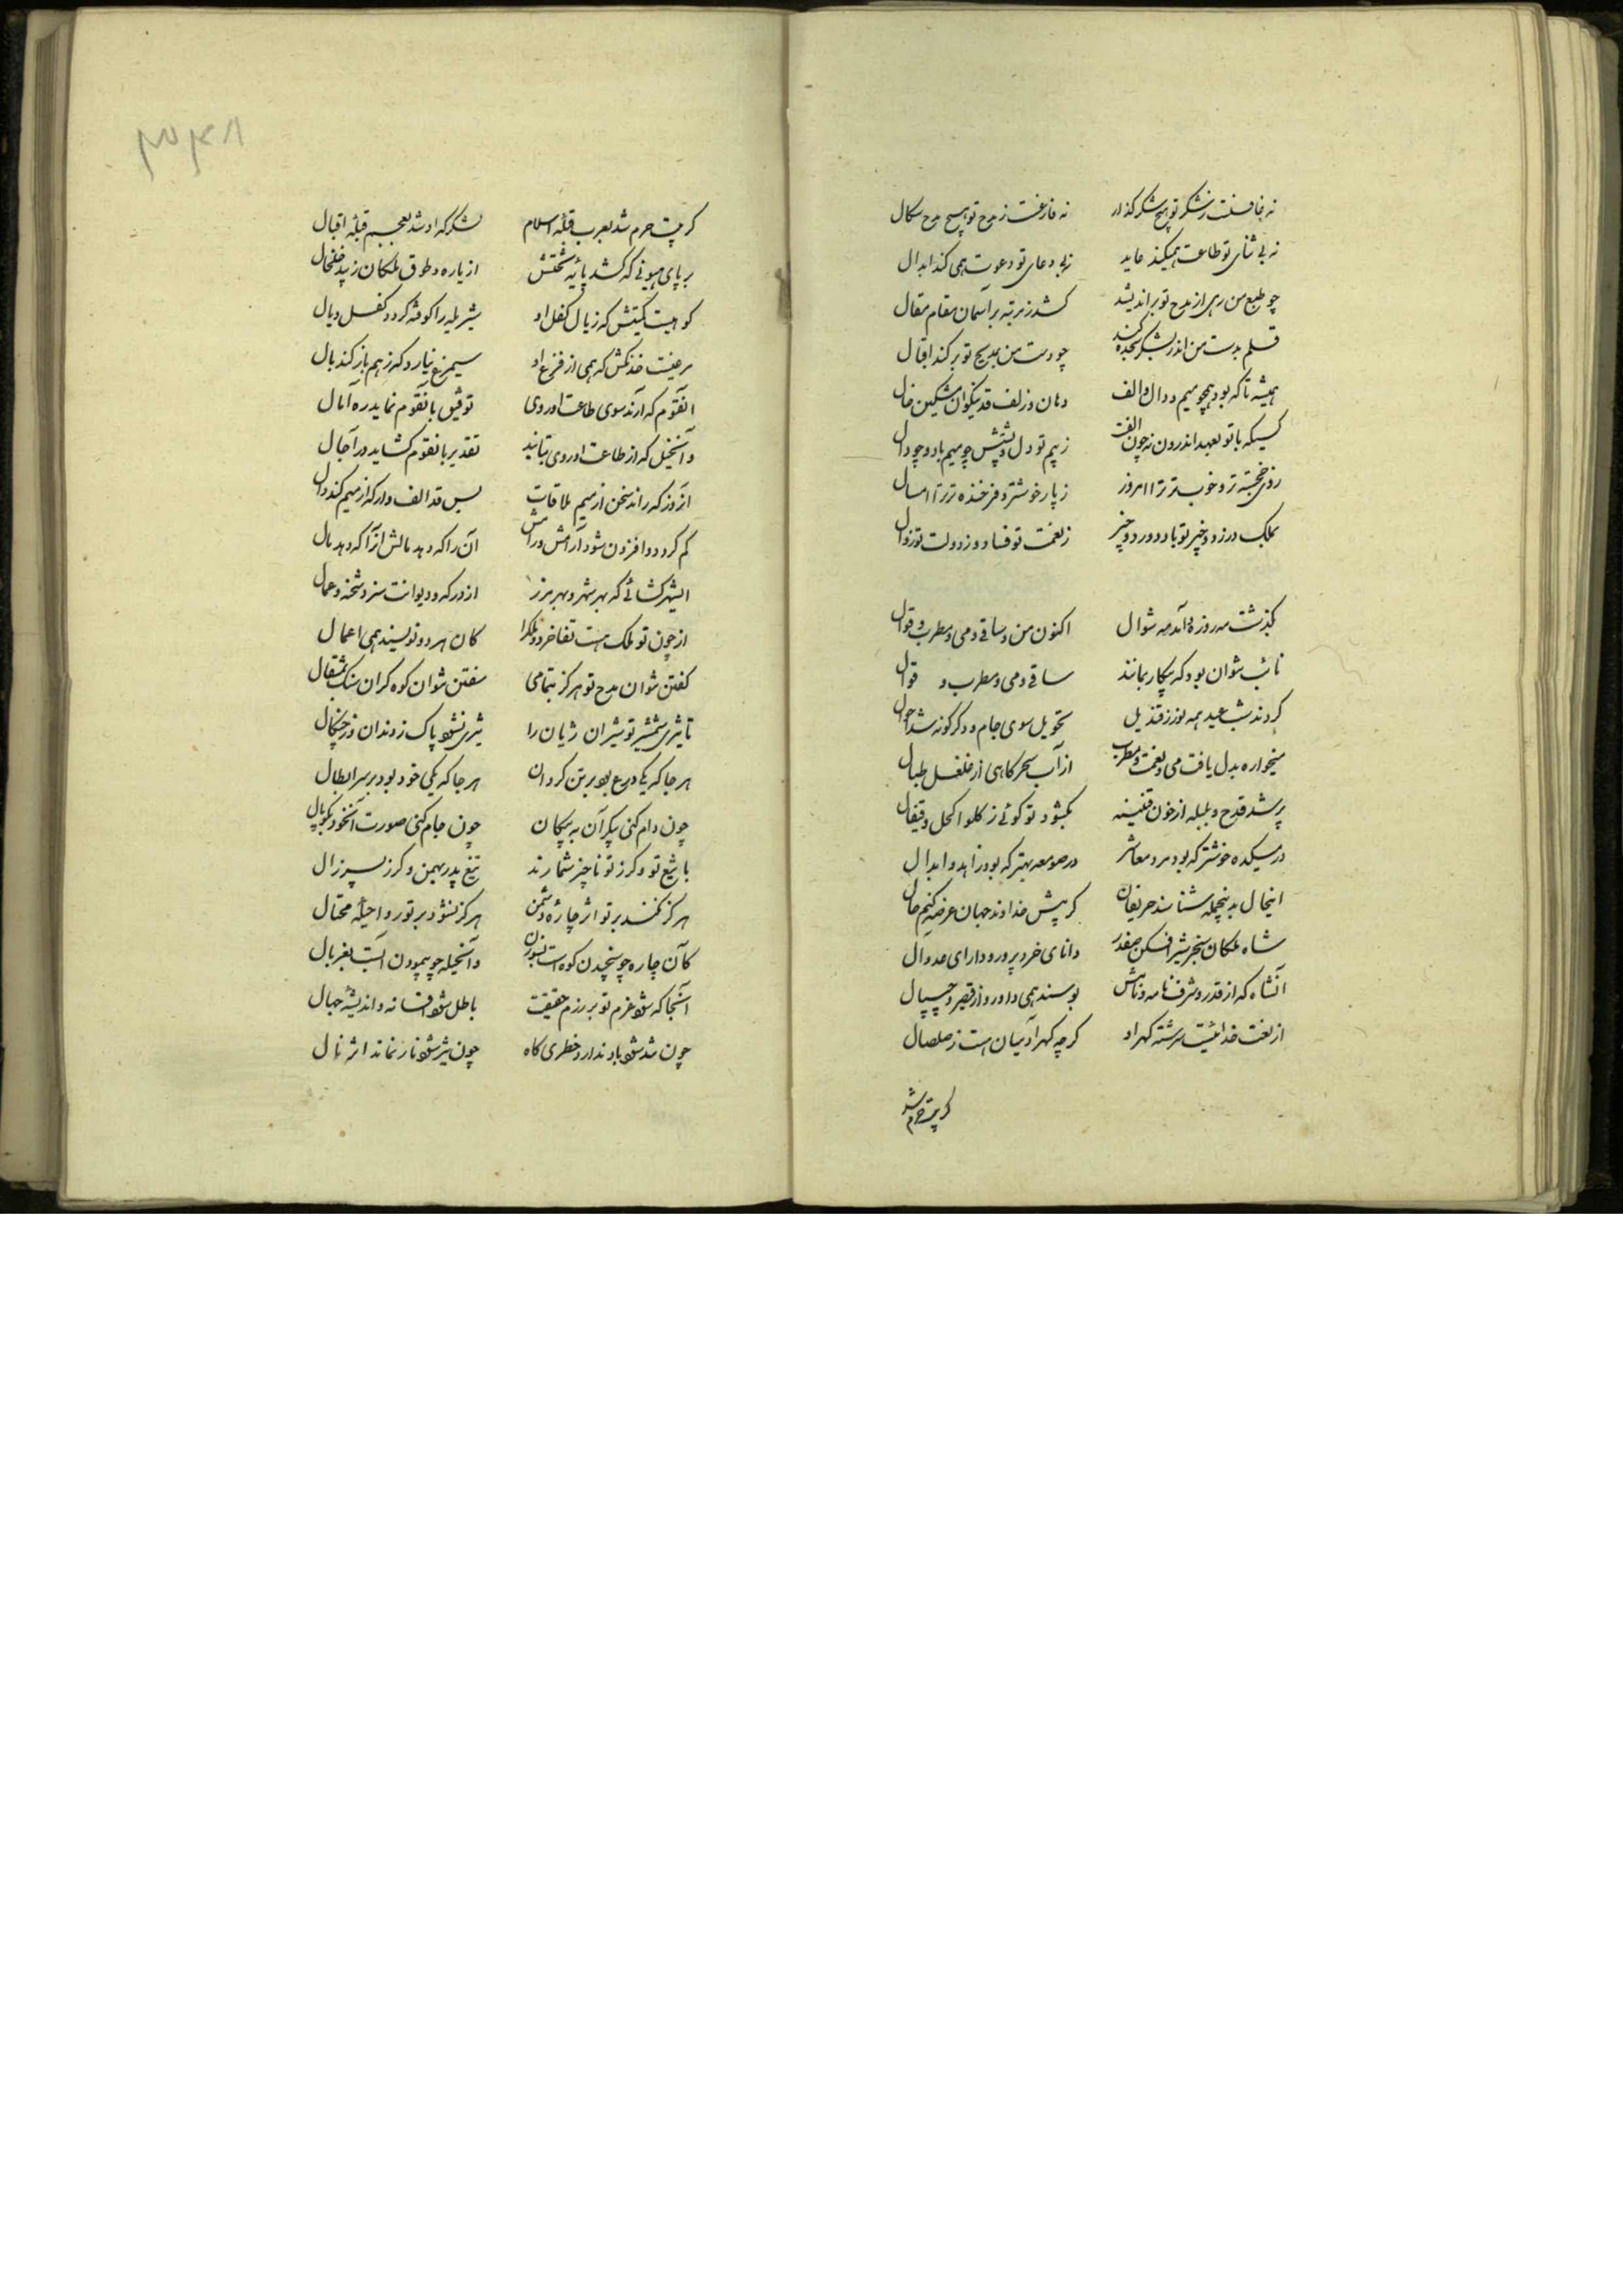 نه غافلست ز شکر تو هیچ شکر گذار نه فارغست ز مدح تو هیچ مدح سگال
نه بی ثنای تو طاعت همیکند عابد نه بی دعای تو دعوت همی کند ابدال
چو طبع من رهی از مدح تو براندیشد کشد ز مرتبه بر آسمان مقام مقال
قلم بدست من اندر بشکر سجده کند چو دست من بمدیح تو برکند اقبال
همیشه تا که بود همچو میم و دال و الف دهان و زلف و قد نیکوان مشکین خال
کسیکه با تو بعهد اندرون نه چون الفت ز بیم تو دل و پشتش چو میم باد و چو دال
روزی خجسته تر و خوبتر ترا امروز ز پار خوشتر و فرخنده تر ترا امسال
بملک در زد و خیر تو باد دور دو چیز ز نعمت تو فساد و ز دولت تو زوال
بگذشت مه روزه و آمد مه شوال اکنون من و ساقی و می و مطرب و قوال
تائب نتوان بود که بیکار بمانند ساقی و می و مطرب و قوال
کردند شب عید همه نور ز قندیل تحویل سوی جام و دگرگونه شد احوال
میخواره بدل یافت می و نغمت مطرب از آب سحرگاهی از غلغل طبال
پر شد قدح و بلبله از خون قنینه بگشود تو گوئی ز گلو اکحل و قیفال
در میکده خوشتر که بود مرد معاشر در صومعه بهتر که بود زاهد و ابدال
اینحال بدینجمله شناسند حریفان گر پیش خداوند جهان عرضه کنیم حال
شاه ملکان سنجر شیر افکن صفدر دانای خرد پرور و دارای عدو مال
آنشاه که از قدر و شرف نامه و نامش بوسند همی داور و از قیصر و چیپال
از لعنت خدائیت سرشته گهر او گرچه گهر آدمیان است ز صلصال
گر بیت حرم شد
گر بیت حرم شد بعرب قبلهٔ اسلام لشکرگه او شد بعجم قبلهٔ اقبال
بر پای هیونی که کشد پایهٔ تختش از یاره و طوق ملکان زیبد خلخال
کوهیست کمیتش که ز یال و کفل او شیر یله را کوفته گردد کفل و یال
مرغیست خدنگش که همی از فزع او سیمرغ نیارد که ز هم باز کند بال
آنقوم که آرند سوی طاعت او روی توفیق بآنقوم نماید ره آمال
وآنخیل که از طاعت او روی بتابند تقدیر بآنقوم گشاید در آجال
آنروز که راند سخن از میم ملاقات بس قد الف وار که از میم کند دال
کم گردد و افزون شود آرامش و رامش آن را که دهد مالش و آنرا که دهد مال
ایشهر گشائی که بهر شهر و بهر مرز از درگه و دیوانت سزد شحنه و عمال
از چون تو ملک هست تفاخر دو ملکرا کان هر دو نویسند همی اعمال
گفتن نتوان مدح تو هرگز بتمامی سفتن نتوان کوه گران سنگ بمثقال
تا شیری شمشیر تو شیران ژیان را شیری نشود پاک ز دندان و ز چنگال
هر جا که یکی درع بود بر تن گردان هر جا که یکی خود بود بر سر ابطال
چون دام کنی پیکر آن به پیکان چون جام کنی صورت آنخود بکوپال
با تیغ تو و گرز تو ناچیز شمارند تیغ پدر بهمن و گرز پسر زال
هرگز نکند بر تو اثر چارهٔ دشمن هرگز نشود بر تو روا حیلهٔ محتال
کآن چاره چو سنجیدن کوه است وآنحیله چو پیمودن آبست بغربال
آنجا که شود عزم تو بر رزم حقیقت باطل شود افسانه و اندیشهٔ جهال
چون تند شود باد ندارد خطری کاه چون تیز شود نار نماند اثر نال